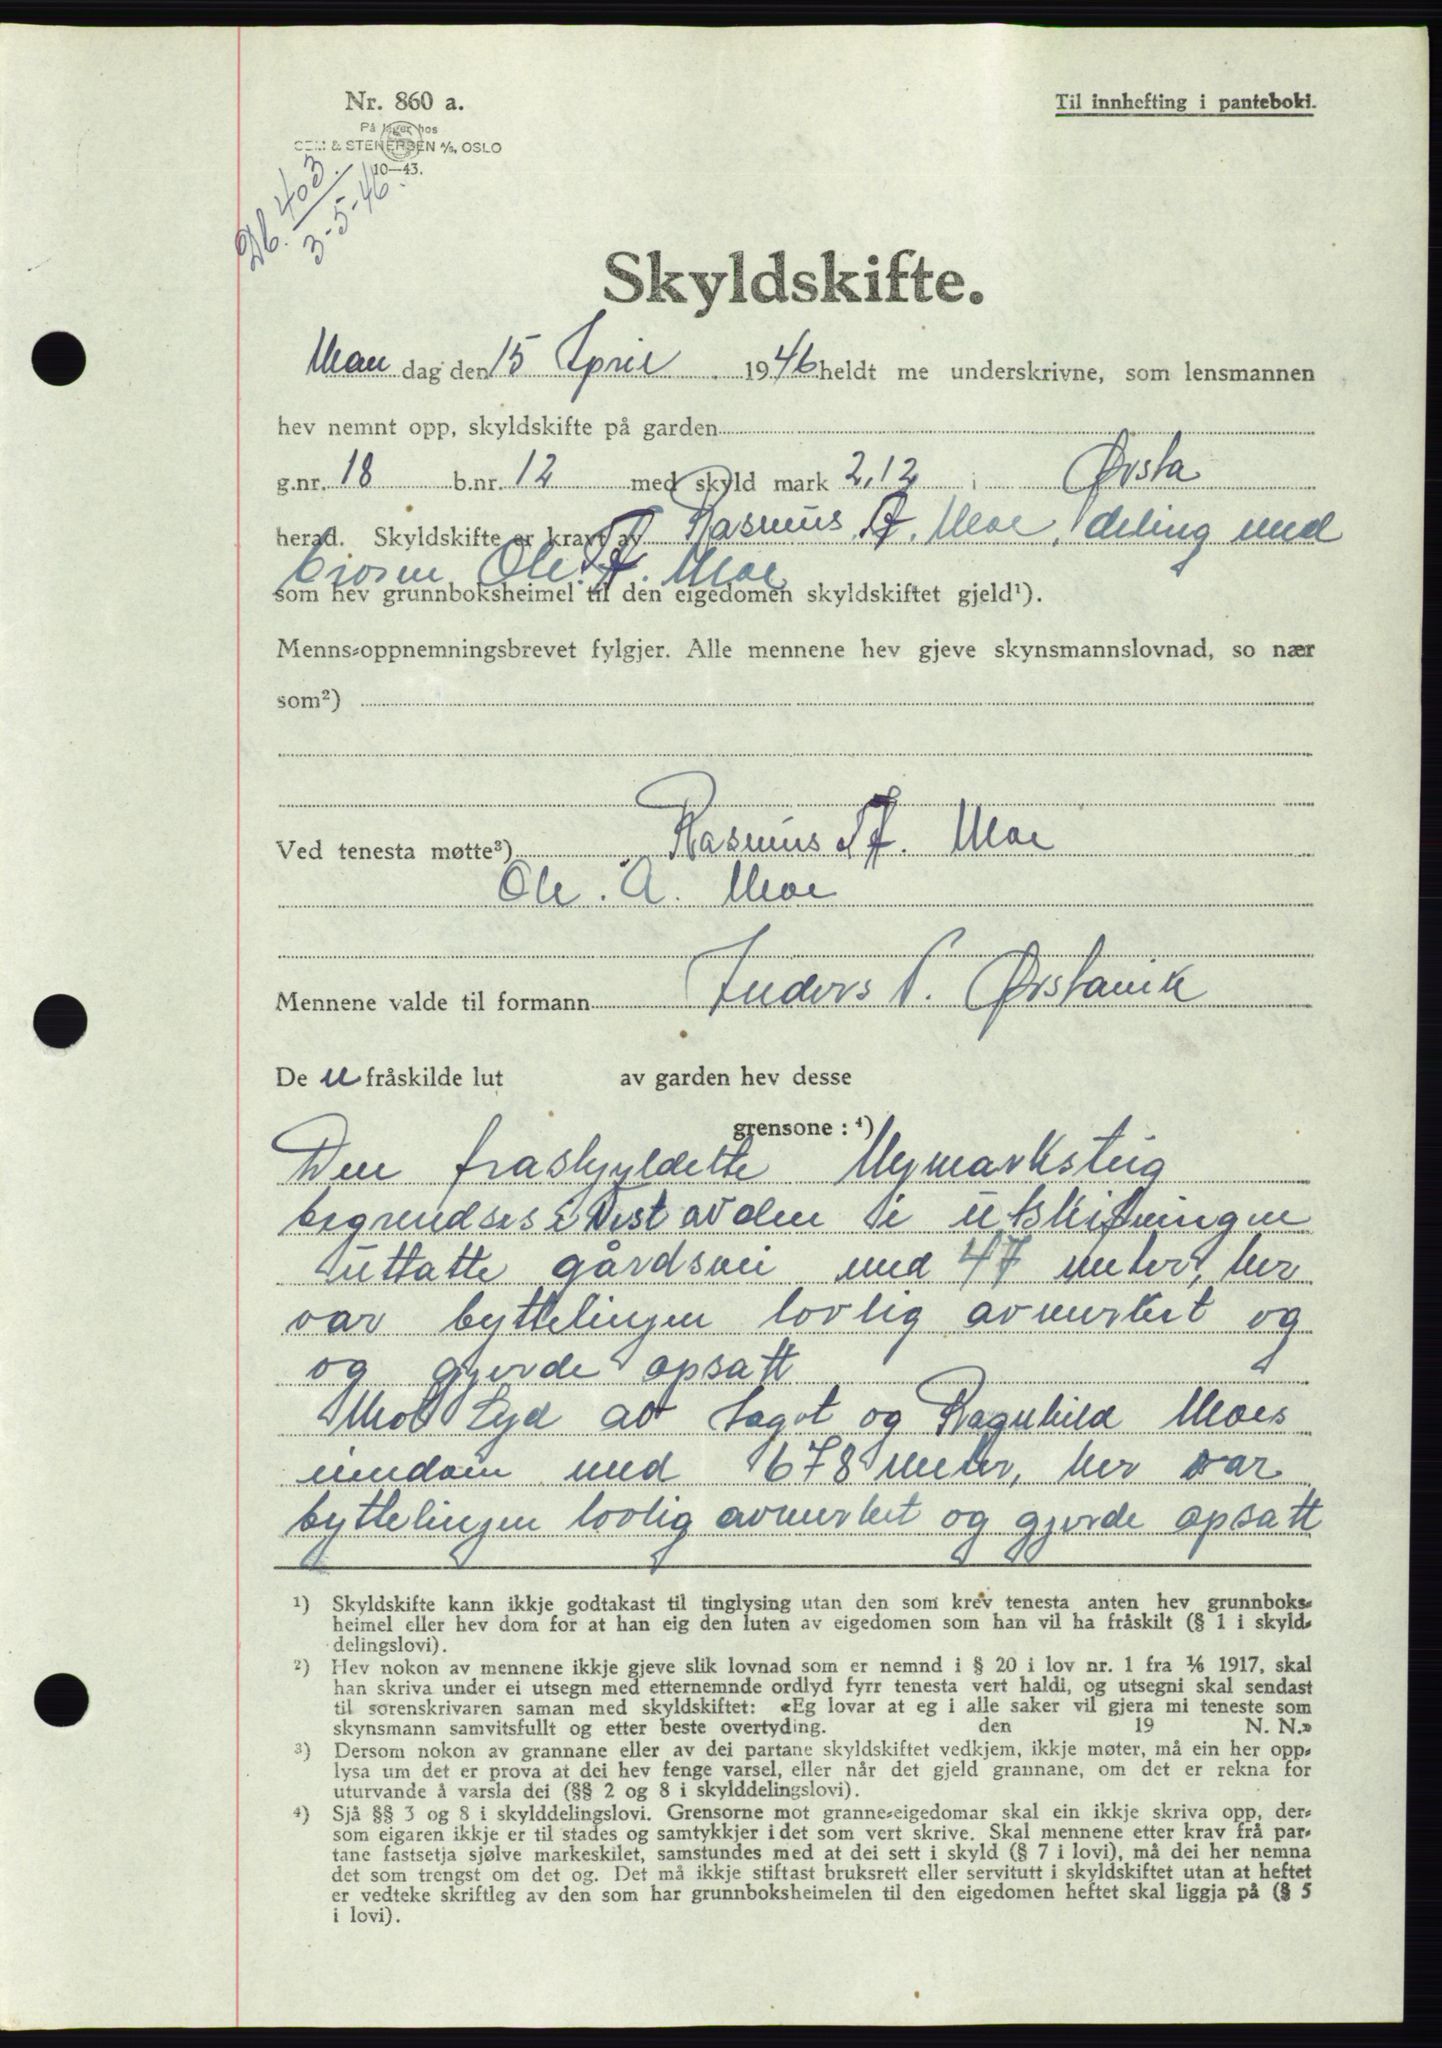 Nr. 860 a.
Til innhefting i panteboki.
På lager hos
SEM & STENERSEN A/S, OSLO
10—43.
Db. 403.
3-5-46.
Skyldskifte.
Man dag den 15 April 1946 heldt me underskrivne, som lensmannen
hev nemnt opp, skyldskifte på garden
g.nr. 18 b.nr. 12 med skyld mark 2,12 i Ørsta
herad. Skyldskifte er kravt av Rasmus A. Moe, deling med
broren Ole. A. Moe
som hev grunnboksheimel til den eigedomen skyldskiftet gjeld¹).
Menns-oppnemningsbrevet fylgjer. Alle mennene hev gjeve skynsmannslovnad, so nær
som²)
Ved tenesta møtte³) Rasmus A. Moe
Ole. A. Moe
Mennene valde til formann Anders P. Ørstavik
De n fråskilde lut av garden hev desse
grensone : ⁴)
Den fraskyldette Nymarksteig
begrendses i Vest av den i utskiftningen
uttatte gårdsvei med 47 meter, her
var byttelinjen lovlig avmerket og
og gjerde opsatt
Mot Syd av Lagot og Ragnhild Moes
eiendom med 678 meter, her var
byttelinjen lovlig avmerket og gjerde opsatt
¹) Skyldskifte kann ikkje godtakast til tinglysing utan den som krev tenesta anten hev grunnboks-
heimel eller hev dom for at han eig den luten av eigedomen som han vil ha fråskilt (§ 1 i skyld-
delingslovi).
²) Hev nokon av mennene ikkje gjeve slik lovnad som er nemnd i § 20 i lov nr. 1 fra 1/6 1917, skal
han skriva under ei utsegn med etternemnde ordlyd fyrr tenesta vert haldi, og utsegni skal sendast
til sorenskrivaren saman med skyldskiftet: «Eg lovar at eg i alle saker vil gjera mi teneste som
skynsmann samvitsfullt og etter beste overtyding. den 19 N. N.»
³) Dersom nokon av grannane eller av dei partane skyldskiftet vedkjem, ikkje møter, må ein her opp-
lysa um det er prova at dei hev fenge varsel, eller når det gjeld grannane, om det er rekna for
uturvande å varsla dei (§§ 2 og 8 i skylddelingslovi).
⁴) Sjå §§ 3 og 8 i skylddelingslovi. Grensorne mot granne-eigedomar skal ein ikkje skriva opp, der-
som eigaren ikkje er til stades og samtykkjer i det som vert skrive. Skal mennene etter krav frå par-
tane fastsetja sjølve markeskilet, samstundes med at dei sett i skyld (§ 7 i lovi), må dei her nemna
det som trengst om det og. Det må ikkje stiftast bruksrett eller servitutt i skyldskiftet utan at heftet
er vedteke skriftleg av den som har grunnboksheimelen til den eigedomen heftet skal liggja på (§ 5
i lovi).